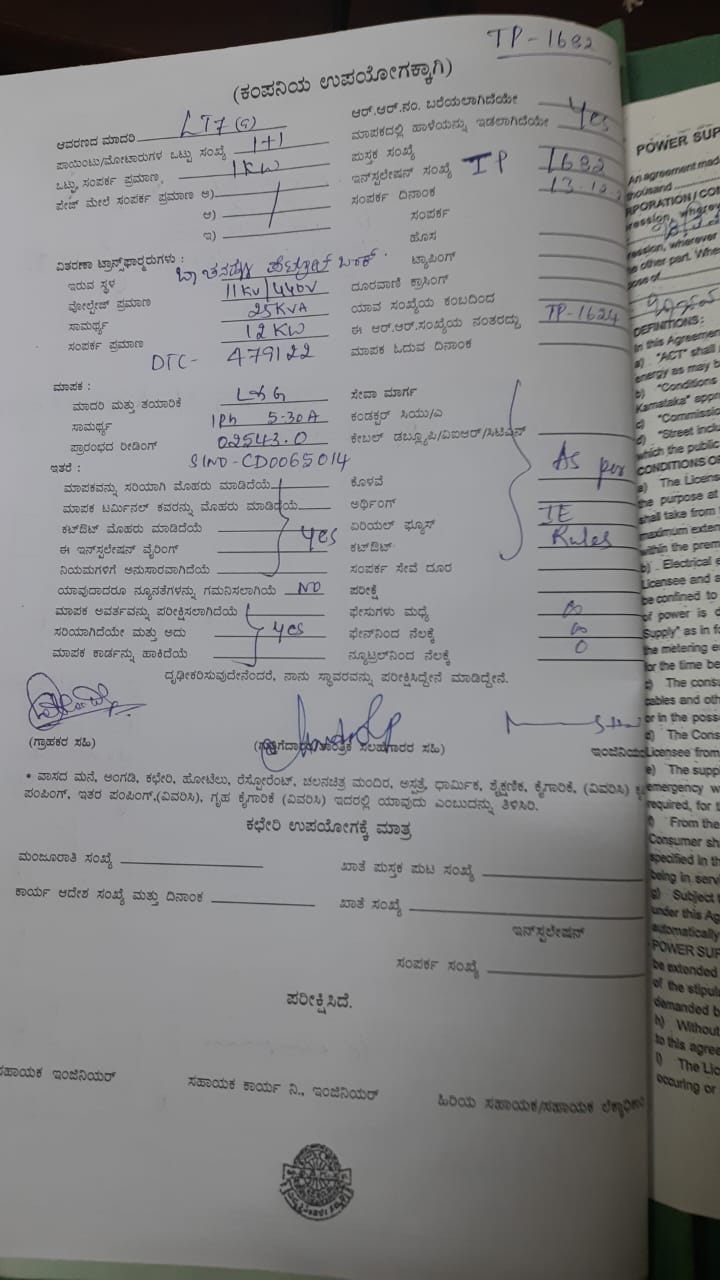 TP-1682
(ಕಂಪನಿಯ ಉಪಯೋಗಕ್ಕಾಗಿ)
ಆವರಣದ ಮಾದರಿ LT7 (a)
ಪಾಯಿಂಟು/ಮೋಟಾರುಗಳ ಒಟ್ಟು ಸಂಖ್ಯೆ 1+1
ಒಟ್ಟು ಸಂಪರ್ಕ ಪ್ರಮಾಣ 1KW
ಪೇಜ್ ಮೇಲೆ ಸಂಪರ್ಕ ಪ್ರಮಾಣ ಅ)
ಆ)
ಇ)
ಆರ್.ಆರ್.ನಂ. ಬರೆಯಲಾಗಿದೆಯೇ
ಮಾಪಕದಲ್ಲಿ ಹಾಳೆಯನ್ನು ಇಡಲಾಗಿದೆಯೇ Yes
ಪುಸ್ತಕ ಸಂಖ್ಯೆ
ಇನ್‌ಸ್ಟಲೇಷನ್ ಸಂಖ್ಯೆ TP 1682
ಸಂಪರ್ಕ ದಿನಾಂಕ 13.12
ಸಂಪರ್ಕ
ಹೊಸ
ಟ್ಯಾಪಿಂಗ್
ದೂರವಾಣಿ ಕ್ರಾಸಿಂಗ್
ಯಾವ ಸಂಖ್ಯೆಯ ಕಂಬದಿಂದ
ಈ ಆರ್.ಆರ್.ಸಂಖ್ಯೆಯ ನಂತರದ್ದು TP-1624
ಮಾಪಕ ಓದುವ ದಿನಾಂಕ
ವಿತರಣಾ ಟ್ರಾನ್ಸ್‌ಫಾರ್ಮರುಗಳು :
ಇರುವ ಸ್ಥಳ
ವೋಲ್ಟೇಜ್ ಪ್ರಮಾಣ 11KV/440V
ಸಾಮರ್ಥ್ಯ 25KVA
ಸಂಪರ್ಕ ಪ್ರಮಾಣ 12KW
DTC- 479122
ಮಾಪಕ :
ಮಾದರಿ ಮತ್ತು ತಯಾರಿಕೆ L&G
ಸಾಮರ್ಥ್ಯ 1Ph 5-30A
ಪ್ರಾರಂಭದ ರೀಡಿಂಗ್ 02543.0
ಇತರೆ : SlNO-CD0065014
ಸೇವಾ ಮಾರ್ಗ
ಕಂಡಕ್ಟರ್ ಸಿಯು/ಎ
ಕೇಬಲ್ ಡಬ್ಲ್ಯೂಪಿ/ವಿಐಆರ್/ಸಿಟಿಎಸ್
ಮಾಪಕವನ್ನು ಸರಿಯಾಗಿ ಮೊಹರು ಮಾಡಿದೆಯೆ
ಮಾಪಕ ಟರ್ಮಿನಲ್ ಕವರನ್ನು ಮೊಹರು ಮಾಡಿದೆಯೆ
ಕಟ್‌ಔಟ್ ಮೊಹರು ಮಾಡಿದೆಯೆ Yes
ಈ ಇನ್‌ಸ್ಟಲೇಷನ್ ವೈರಿಂಗ್
ನಿಯಮಗಳಿಗೆ ಅನುಸಾರವಾಗಿದೆಯೆ
ಯಾವುದಾದರೂ ನ್ಯೂನತೆಗಳನ್ನು ಗಮನಿಸಲಾಗಿಯೆ NO
ಮಾಪಕ ಅವರ್ತವನ್ನು ಪರೀಕ್ಷಿಸಲಾಗಿದೆಯೆ
ಸರಿಯಾಗಿದೆಯೇ ಮತ್ತು ಅದು Yes
ಮಾಪಕ ಕಾರ್ಡನ್ನು ಹಾಕಿದೆಯೆ
ಕೊಳವೆ As per
ಅರ್ಥಿಂಗ್
ಏರಿಯಲ್ ಫ್ಯೂಸ್ IE
ಕಟ್‌ಔಟ್ Rules
ಸಂಪರ್ಕ ಸೇವೆ ದೂರ
ಪರೀಕ್ಷೆ
ಫೇಸುಗಳು ಮಧ್ಯೆ ∞
ಫೇಸ್‌ನಿಂದ ನೆಲಕ್ಕೆ ∞
ನ್ಯೂಟ್ರಲ್‌ನಿಂದ ನೆಲಕ್ಕೆ 0
ದೃಢೀಕರಿಸುವುದೇನೆಂದರೆ, ನಾನು ಸ್ಥಾವರವನ್ನು ಪರೀಕ್ಷಿಸಿದ್ದೇನೆ ಮಾಡಿದ್ದೇನೆ.
(ಗ್ರಾಹಕರ ಸಹಿ)
ಸಲಹಗಾರರ ಸಹಿ)
* ವಾಸದ ಮನೆ, ಅಂಗಡಿ, ಕಛೇರಿ, ಹೋಟೆಲು, ರೆಸ್ಟೋರೆಂಟ್, ಚಲನಚಿತ್ರ ಮಂದಿರ, ಅಸ್ಪತ್ರೆ, ಧಾರ್ಮಿಕ, ಶೈಕ್ಷಣಿಕ, ಕೈಗಾರಿಕೆ, (ವಿವರಿಸಿ)
ಪಂಪಿಂಗ್, ಇತರ ಪಂಪಿಂಗ್,(ವಿವರಿಸಿ), ಗೃಹ ಕೈಗಾರಿಕೆ (ವಿವರಿಸಿ) ಇದರಲ್ಲಿ ಯಾವುದು ಎಂಬುದನ್ನು ತಿಳಿಸಿರಿ.
ಕಛೇರಿ ಉಪಯೋಗಕ್ಕೆ ಮಾತ್ರ
ಮಂಜೂರಾತಿ ಸಂಖ್ಯೆ
ಖಾತೆ ಪುಸ್ತಕ ಪುಟ ಸಂಖ್ಯೆ
ಕಾರ್ಯ ಆದೇಶ ಸಂಖ್ಯೆ ಮತ್ತು ದಿನಾಂಕ
ಖಾತೆ ಸಂಖ್ಯೆ
ಇನ್‌ಸ್ಟಲೇಷನ್
ಸಂಪರ್ಕ ಸಂಖ್ಯೆ
ಪರೀಕ್ಷಿಸಿದೆ.
ಸಹಾಯಕ ಇಂಜಿನಿಯರ್
ಸಹಾಯಕ ಕಾರ್ಯ ನಿ., ಇಂಜಿನಿಯರ್
ಹಿರಿಯ ಸಹಾಯಕ/ಸಹಾಯಕ
POWER SUP
An agreement mad
thousand
RPORATION / CO
ression, wherev
ession, wherever
he other part. Whe
pose of
DEFINITIONS :
In this Agreemen
a) "ACT" shall
energy as may b
b) "Conditions
Karnataka" appr
c) "Commissio
d) "Street inclu
which the public
CONDITIONS OF
a) The Licens
the purpose at
shall take from
maximum exten
within the prem
b) Electrical e
Licensee and a
be confined to
of power is d
Supply" as in fo
the metering e
for the time be
c) The cons
cables and oth
or in the poss
d) The Cons
Licensee from
e) The suppl
emergency w
required, for t
f) From the
Consumer sh
specified in th
being in serv
g) Subject t
under this Ag
automatically
POWER SUP
be extended
of the stipul
demanded b
h) Without
to this agree
i) The Lic
occuring or